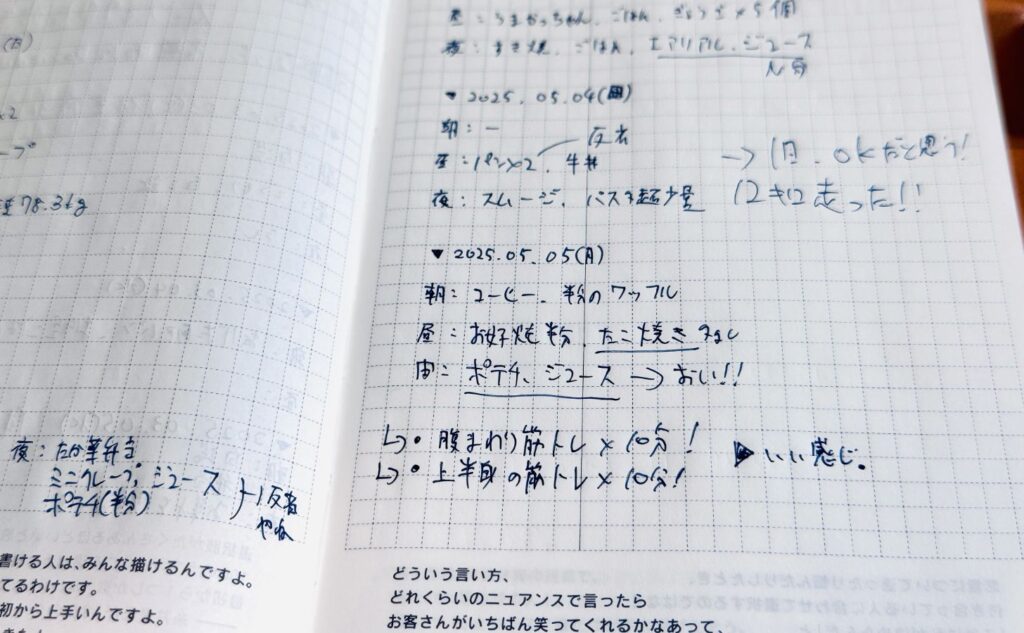 重78.36kg
夜:
ミニクレープ、ジュース
ポテチ(半分)
反省
書ける人は、みんな描けるんですよ。
てるわけです。
初から上手いんですよ。
昼:うまかっちゃん、ごはん、ぎょうざ×5個
夜:すき焼、ごはん、エアリアル、ジュース
▼2025.05.04(日)
朝:ー
反省
昼:パン×2、牛丼
夜:スムージ、パスタ超少量
→1日、OKだと思う!
12キロ走った!!
▼2025.05.05(月)
朝:コーヒー、半分のワッフル
昼:お好焼半分、たこ焼き
間:ポテチ、ジュース→おしい!!
↳・腹まわり筋トレ×10分!
↳・上半身の筋トレ×10分!
▶いい感じ。
どういう言い方、
どれくらいのニュアンスで言ったら
お客さんがいちばん笑ってくれるかなあって、